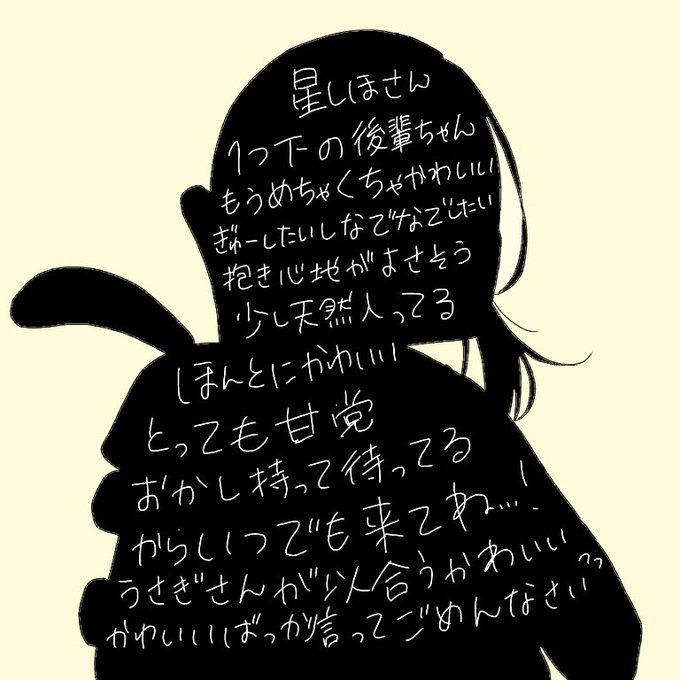 星しほさん
1つ下の後輩ちゃん
もうめちゃくちゃかわいい
ぎゅーしたいしなでなでしたい
抱き心地がよさそう
少し天然入ってる
ほんとにかわいい
とっても甘党
おかし持って待ってる
からいつでも来てね...!
うさぎさんが似合うかわいい
かわいいばっか言ってごめんなさいっっ